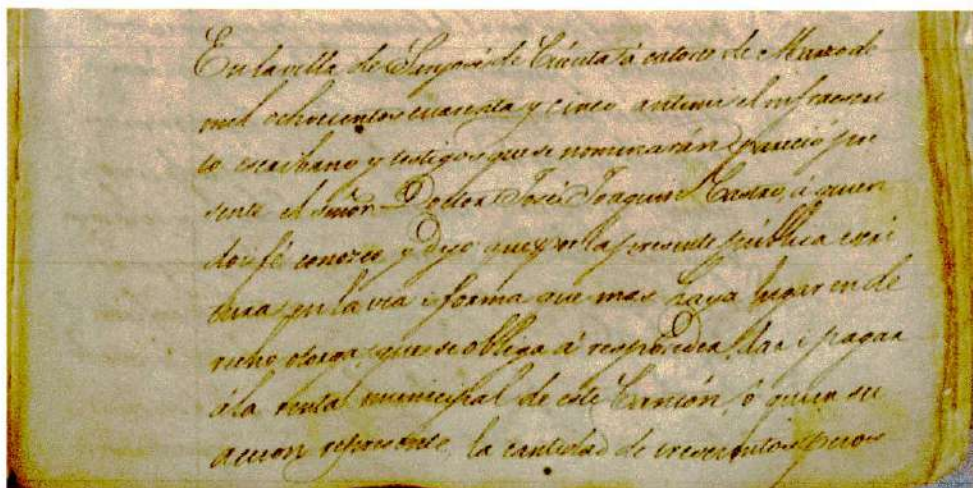 En la villa de San José de Cúcuta á catorce de Marzo de
mil ochocientos cuarenta y cinco antemi el infraescri
to escribano y testigos que se nominarán parecio pre
sente el Señor Doctor José Joaquin Castro, á quien
doi fé conozco, y dijo que por la presente pública escri
tura, en la via i forma que mas haya lugar en de
recho otorga que se obliga á responder, dar i pagar
á la renta municipal de este Cantón, ó quien su
accion represente, la cantidad de trescientos pesos